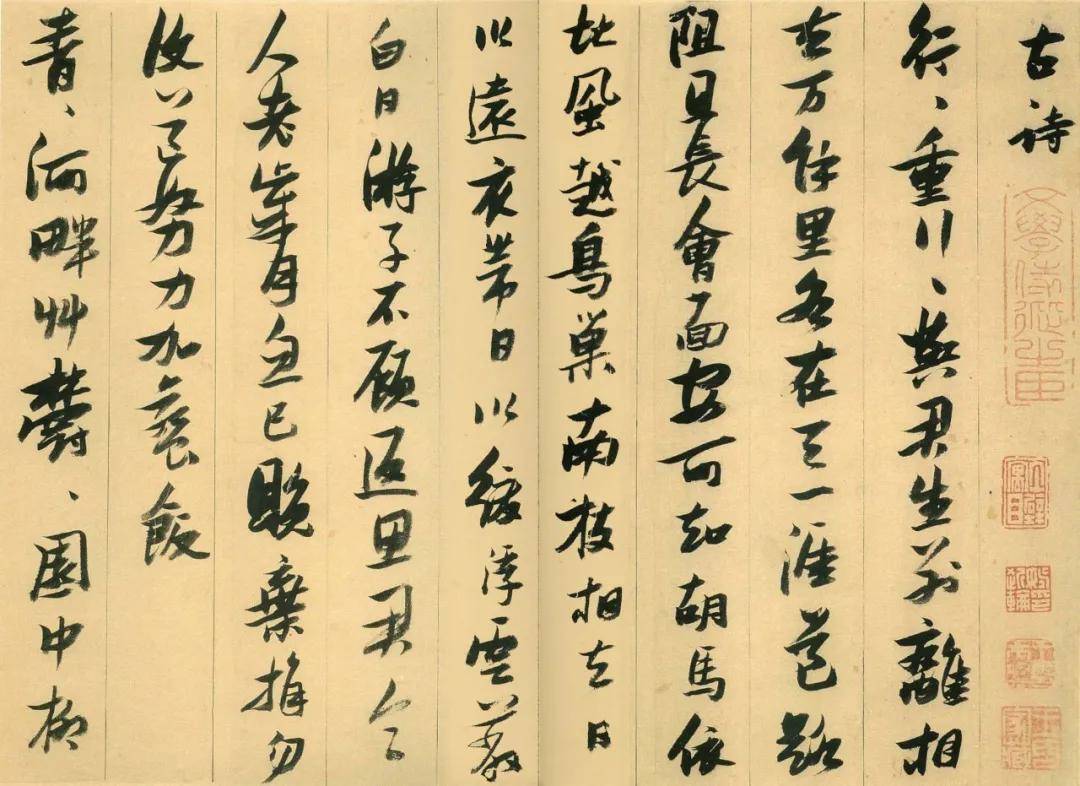 古詩
行、重行、與君生別離相
去万餘里各在天一涯道路
阻且長會面安可知胡馬依
北風越鳥巢南枝相去日
以遠衣帶日以緩浮雲蔽
白日游子不顧返思君令
人老歲月忽已晚棄捐勿
復道努力加餐飯
青、河畔艸鬱、園中柳